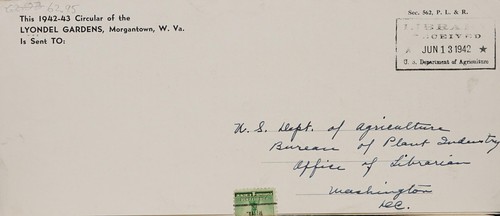 62.95
This 1942-43 Circular of the
LYONDEL GARDENS, Morgantown, W. Va.
Is Sent TO:
Sec. 562, P. L. & R.
LIBRARY
RECEIVED
JUN 13 1942
U. S. Department of Agriculture
U. S. Dept. of Agriculture
Bureau of Plant Industry
Office of Librarian
Washington
D.C.